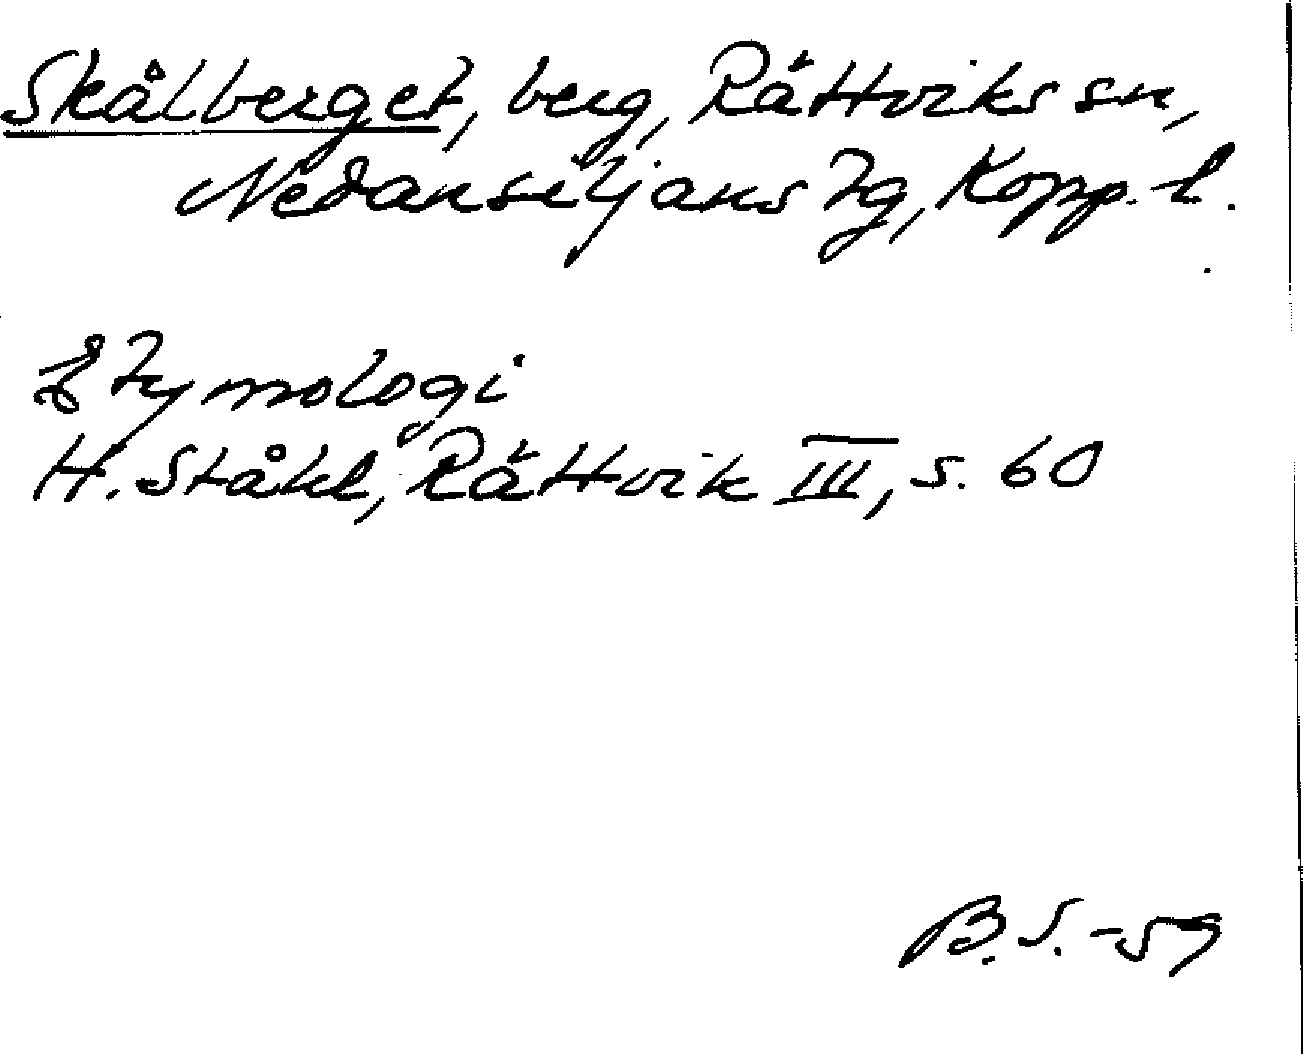 Skålberget, berg, Rättviks sn,
Nedansiljans tg, Kopp. l.
Etymologi
H. Ståhl, Rättvik III, s. 60
B.S. -59